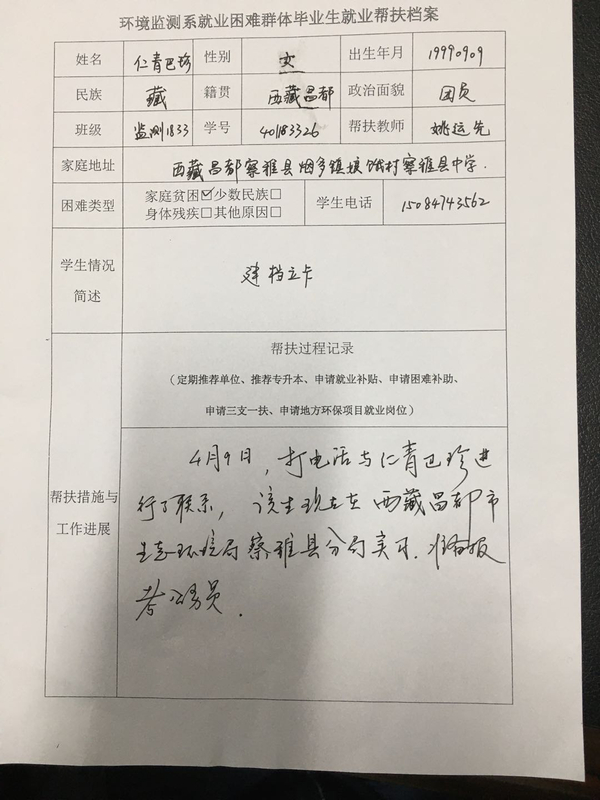 环境监测系就业困难群体毕业生就业帮扶档案
姓名 仁青巴珍 性别 女 出生年月 19990909
民族 藏 籍贯 西藏昌都 政治面貌 团员
班级 监测1833 学号 40183326 帮扶教师 姚运先
家庭地址 西藏昌都察雅县烟多镇 村察雅县中学.
困难类型 家庭贫困☑少数民族□ 学生电话 15084743562
身体残疾□其他原因□
学生情况 建档立卡
简述
帮扶过程记录
(定期推荐单位、推荐专升本、申请就业补贴、申请困难补助、
申请三支一扶、申请地方环保项目就业岗位)
帮扶措施与
工作进展
4月9日，打电话与仁青巴珍进
行了联系，该生现在在西藏昌都市
生态环境局察雅县分局实习.准备报
考公务员.